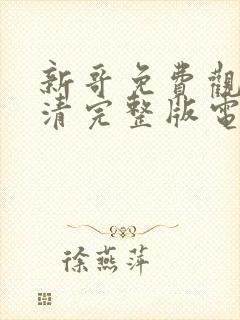 新哥免費觀
清完整版電
徐燕萍